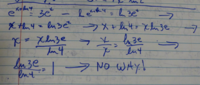 e^{x ln4} = 3e^x → ln e^{x ln4} = ln 3e^x →
x · ln4 = ln 3e^x → x · ln4 = x ln3e →
x = \frac{x ln3e}{ln4} → \frac{x}{x} = \frac{ln3e}{ln4} →
\frac{ln3e}{ln4} = 1 → NO WAY!